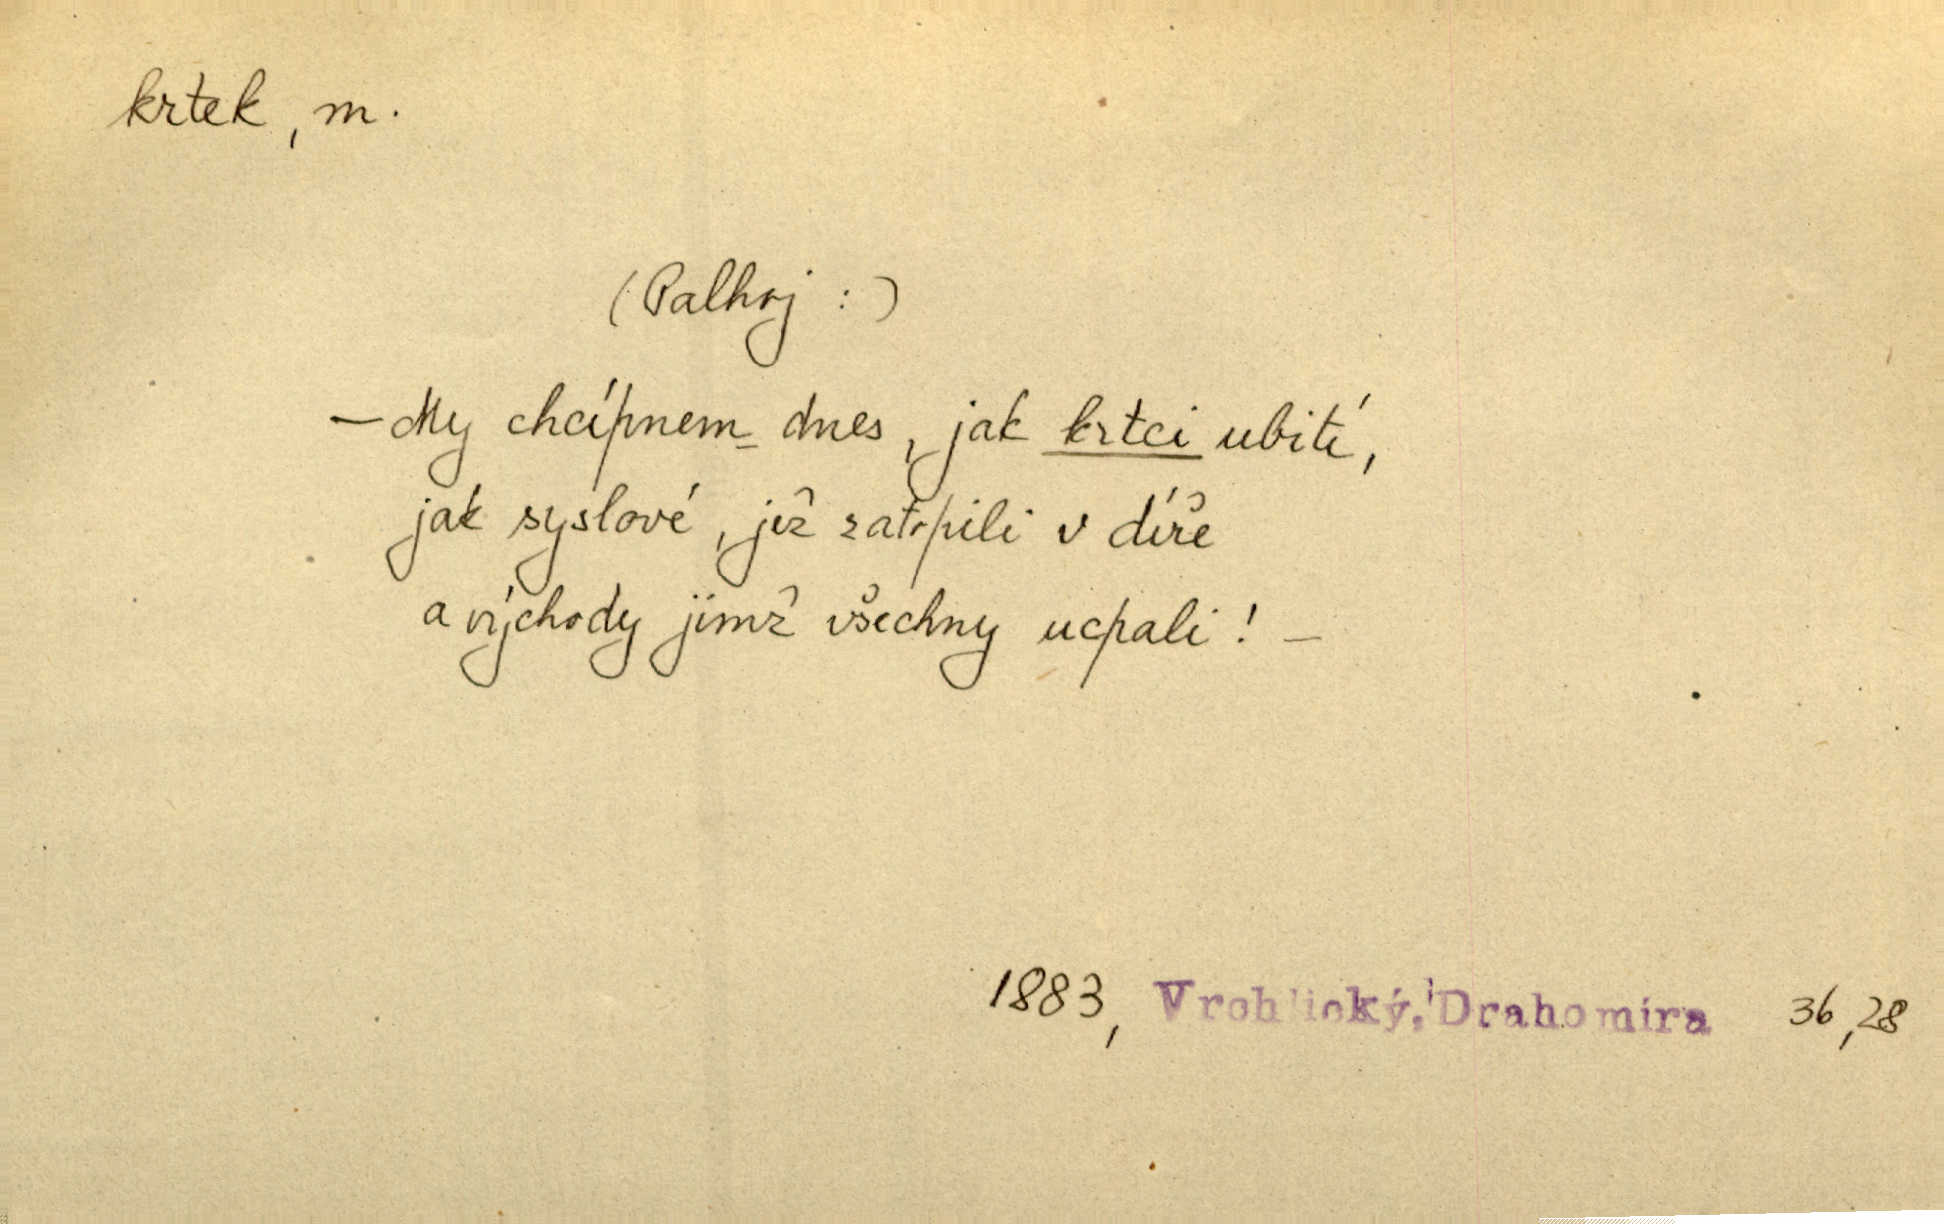 krtek, m.
(Palhoj :)
– My chcípnem dnes, jak krtci ubití,
jak syslové, jež zatopili v díře
a východy jimž všechny ucpali! –
1883, Vrchlický, Drahomíra 36,28